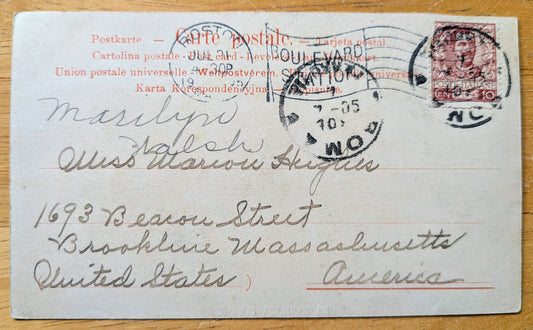 Postkarte — Carte postale. — Tarjeta postal
Cartolina postale
Union postale universelle — Weltpostverein.
Karta Korespondencyjna
BOSTON
JUL 21
BOULEVARD
STATION
ROMA
7-05
POSTE ITALIANE
CENT. 10
Marilyn
Walsh
Miss Marion Hughes
1693 Beacon Street
Brookline Massachusetts
United States) America